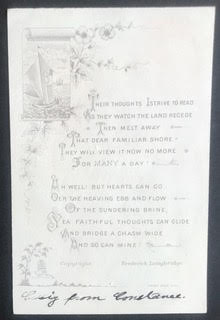 Their thoughts I strive to read
As they watch the land recede
Then melt away
That dear familiar shore,
They will view it now no more
For MANY a day!
Ah well! but hearts can go
O'er the heaving ebb and flow
Of the sundering brine;
Sea faithful thoughts can glide
And bridge a chasm wide
And so can mine!
Copyright Frederick Langbridge
from Constance.